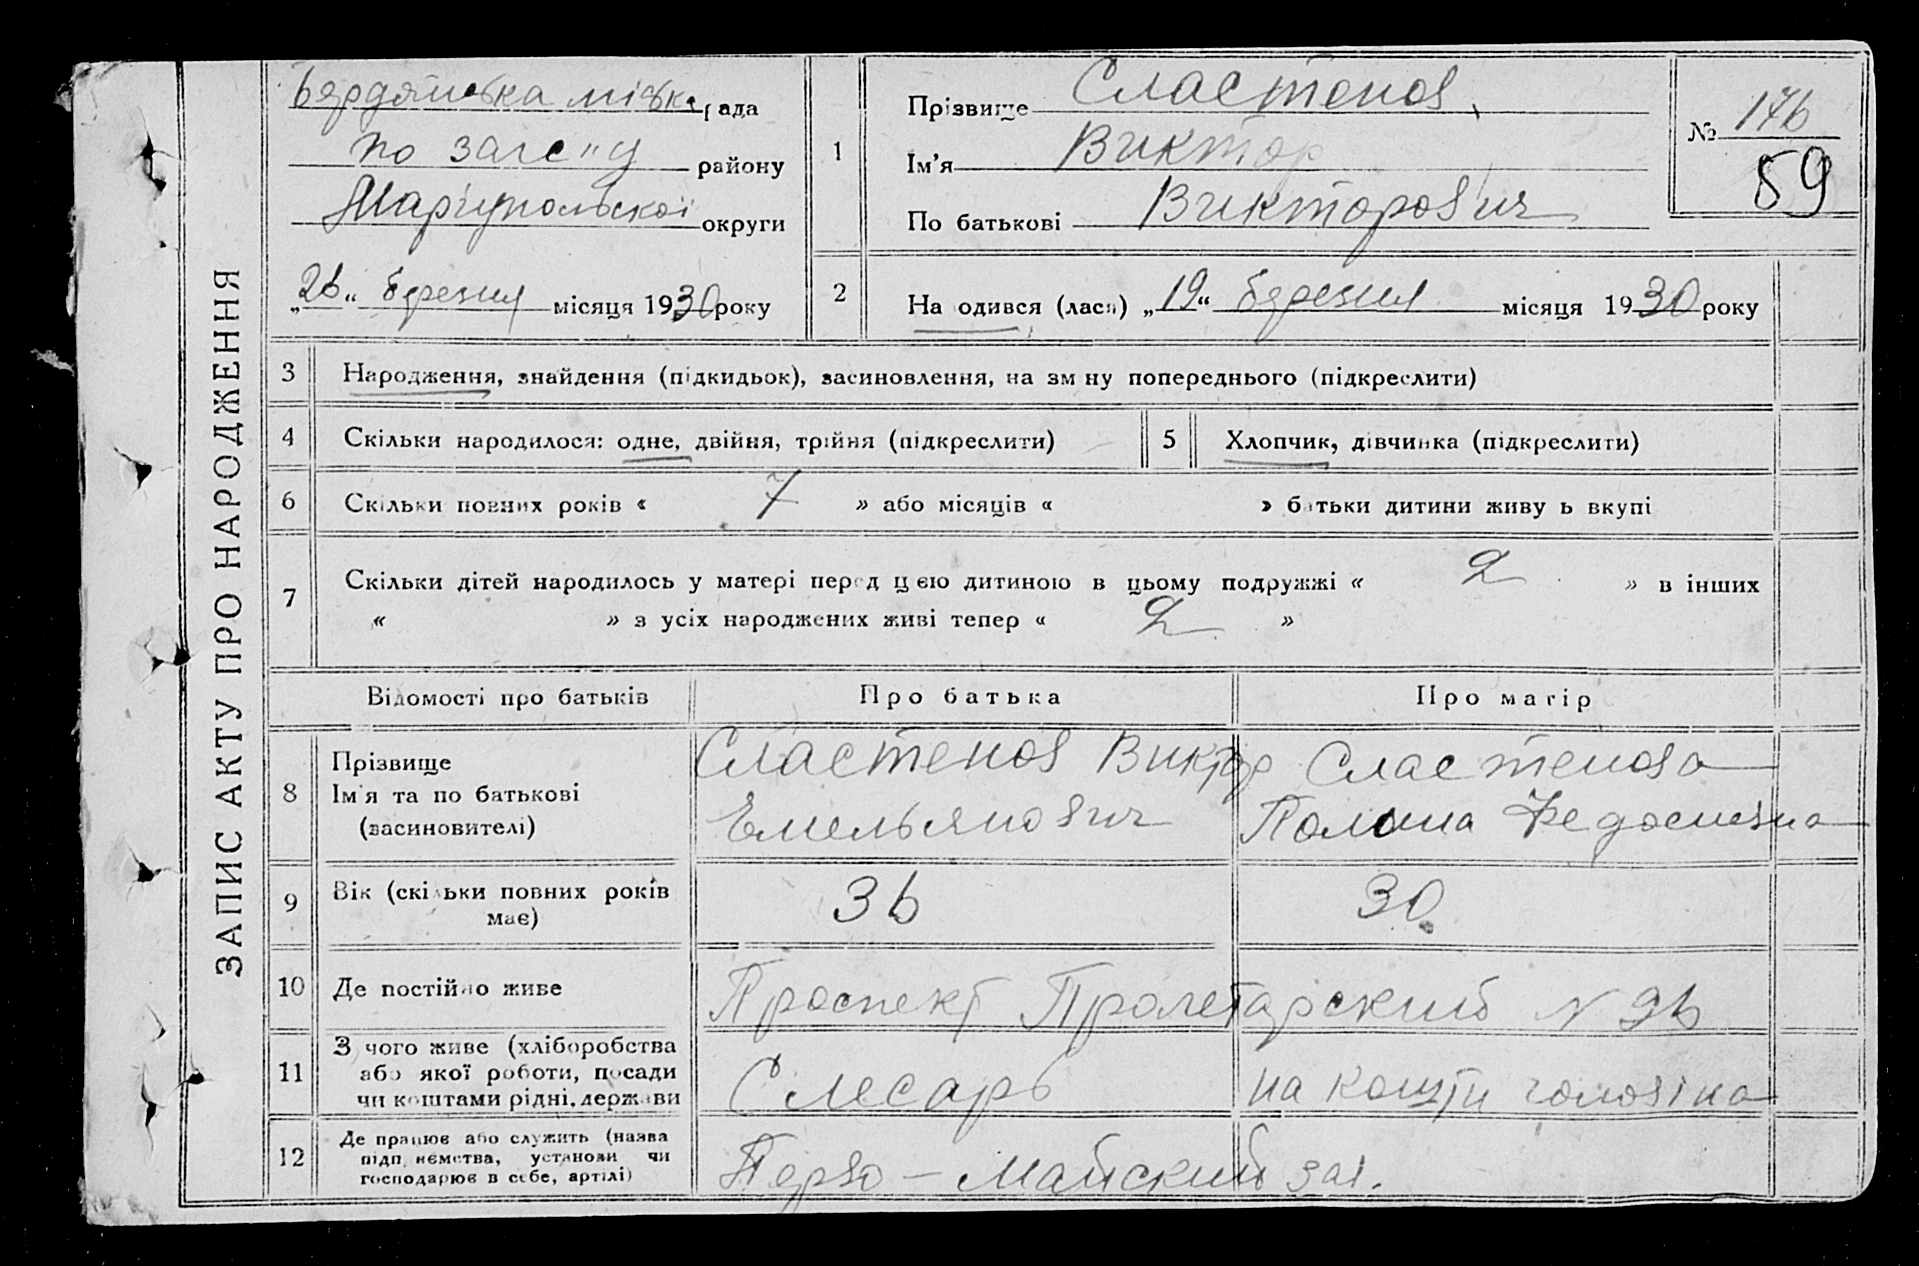 ЗАПИС АКТУ ПРО НАРОДЖЕННЯ
Бердянська міськ рада
по загс"у району
Маріупольскої округи
„26“ березня місяця 1930 року
1
Прізвище Сластенов
Ім’я Виктор
По батькові Викторович
№ 176
59
2
На одився (лася) „19“ березня місяця 1930 року
3 Народження, знайдення (підкидьок), засиновлення, на зм ну попереднього (підкреслити)
4 Скільки народилося: одне, двійня, трійня (підкреслити)
5 Хлопчик, дівчинка (підкреслити)
6 Скільки повних років « 7 » або місяців « » батьки дитини живу ь вкупі
7 Скільки дітей народилось у матері перед цією дитиною в цьому подружжі « 2 » в інших
« » з усіх народжених живі тепер « 2 »
Відомості про батьків
Про батька
Про матір
8
Прізвище
Ім’я та по батькові
(засиновителі)
Сластенов Виктор
Емельянович
Сластенова
Полина Федосиевна
9
Вік (скільки повних років
має)
36
30
10 Де постійно живе
Проспект Пролетарский № 96
11
З чого живе (хліборобства
або якої роботи, посади
чи коштами рідні, держави
Слесарь
на кошти чоловіка
12
Де працює або служить (назва
підп иємства, установи чи
господарює в себе, артілі)
Перво-Майский зав.